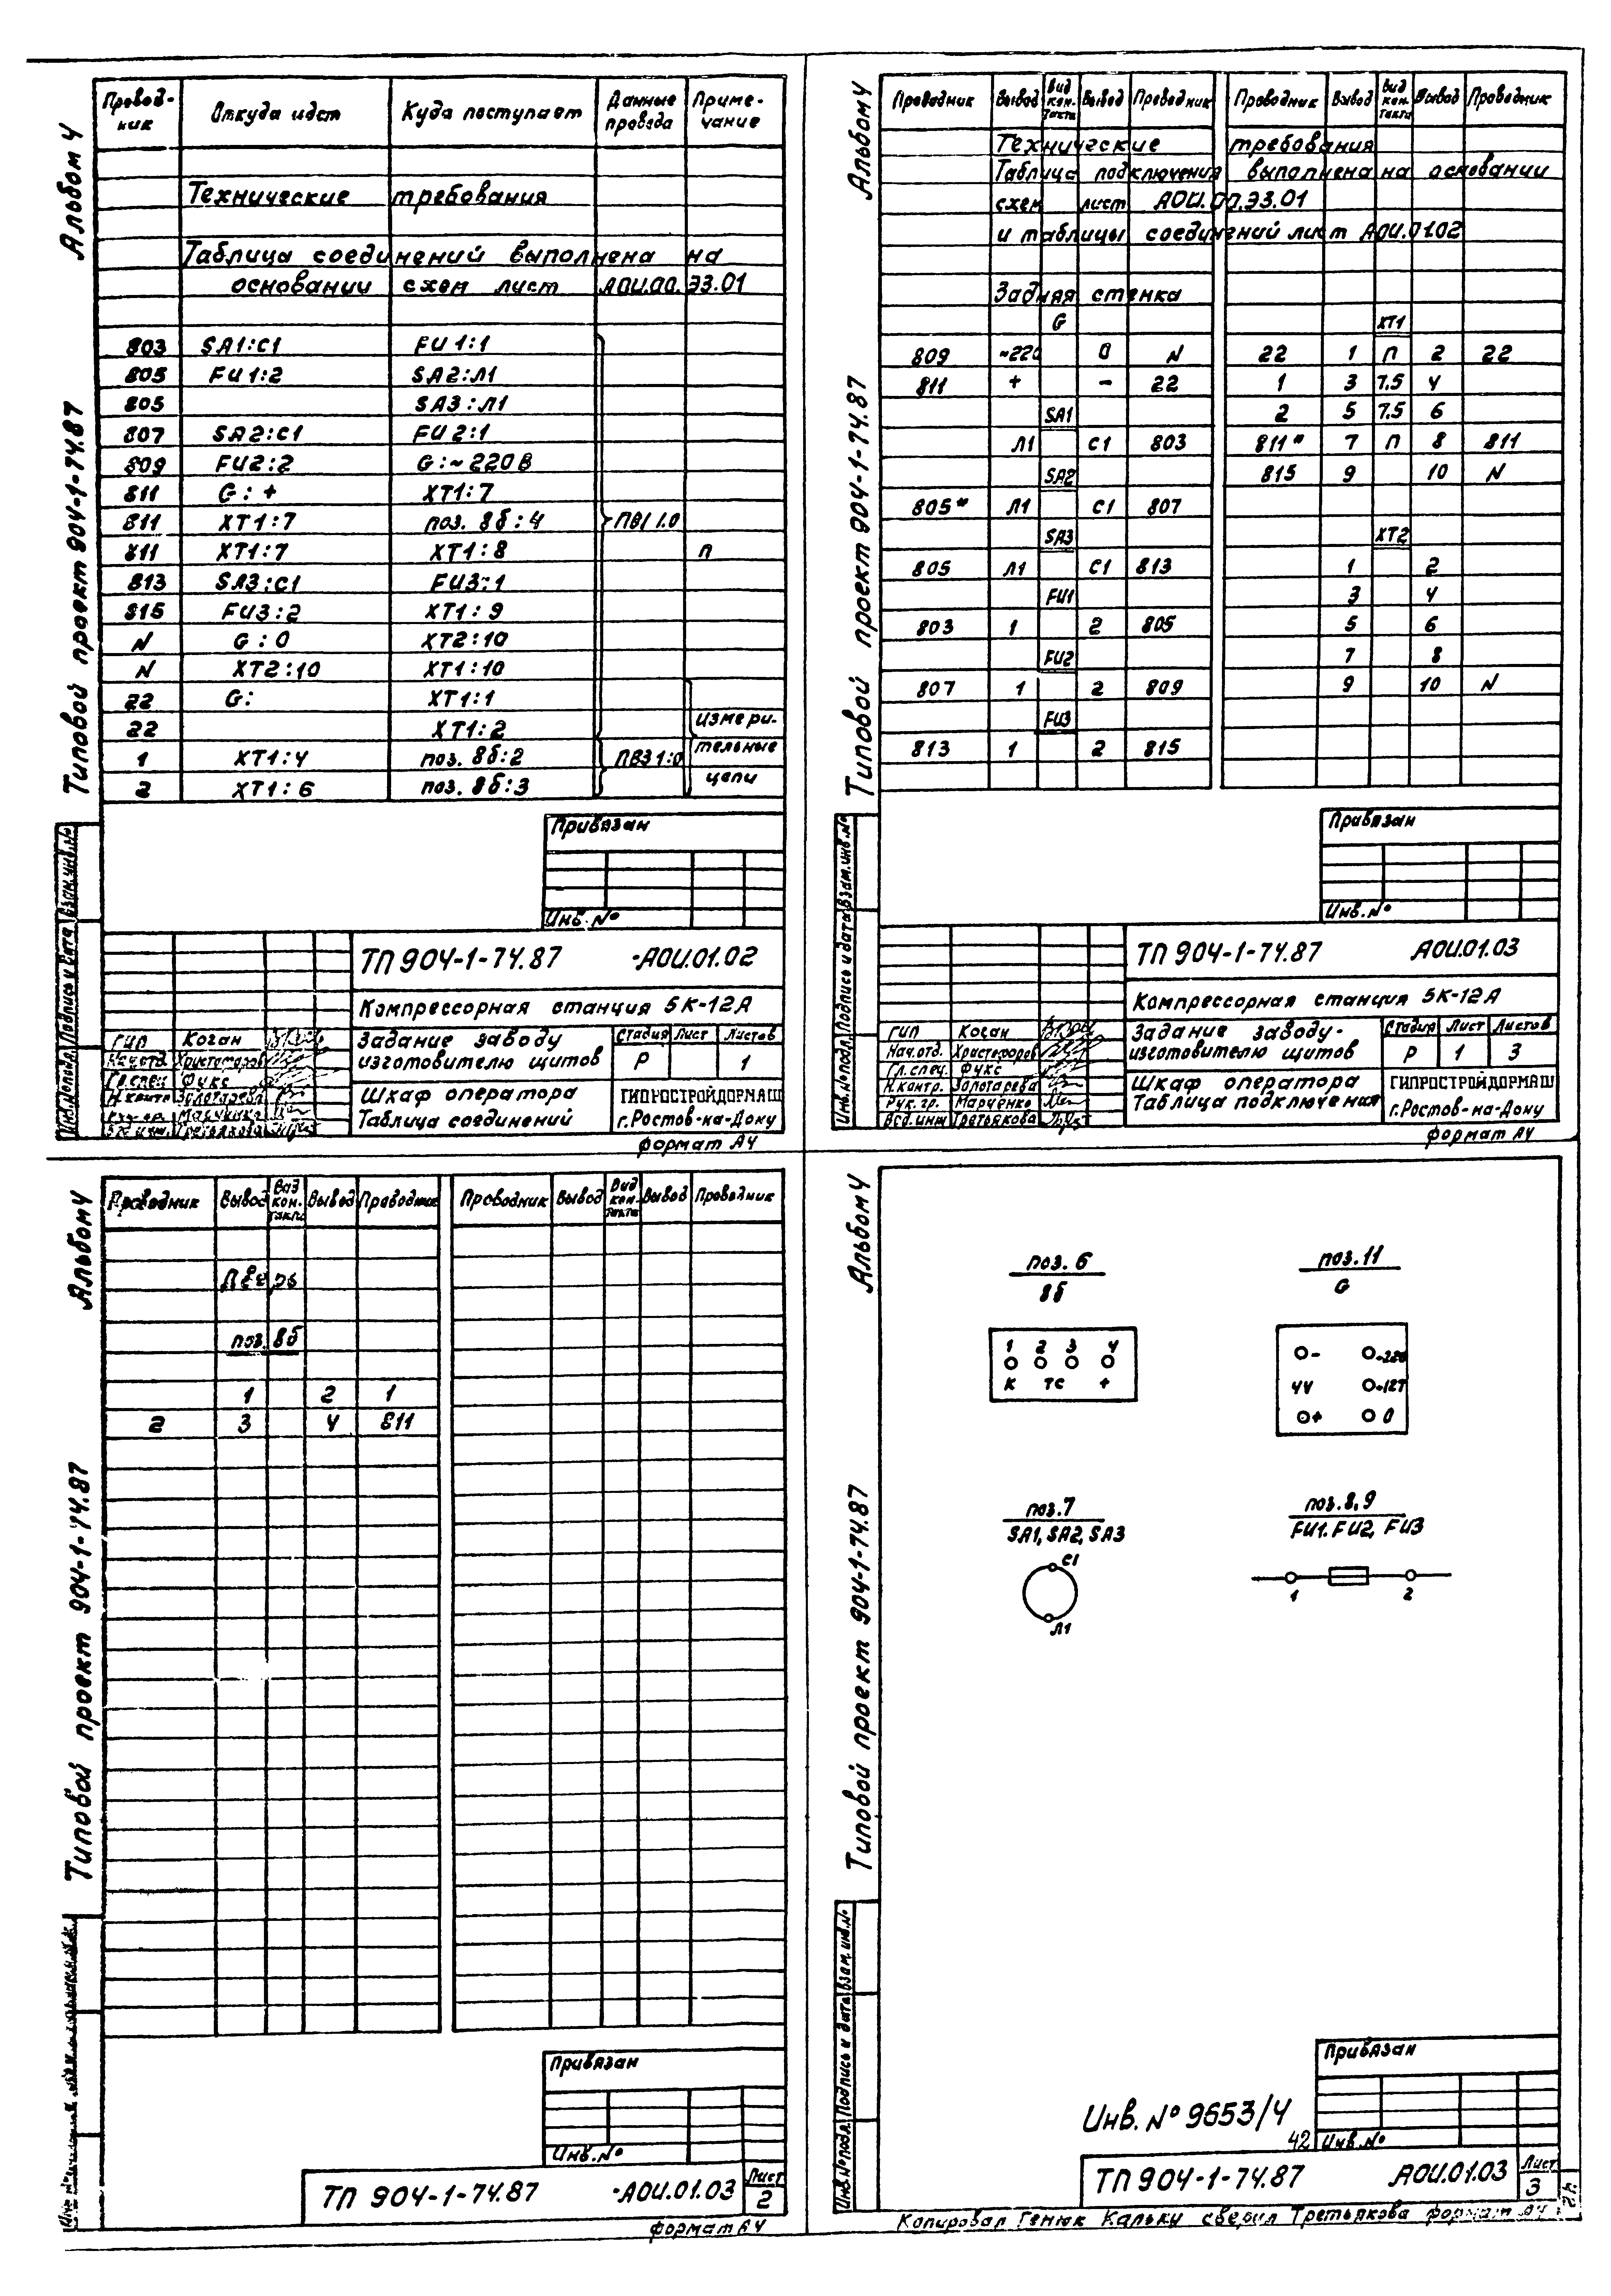 Альбом 4
Типовой проект 904-1-74.87
Провод-ник Откуда идет Куда поступает Данные провода Приме-чание
Технические требования
Таблица соединений выполнена на
основании схем лист АОИ.00.Э3.01
803 SA1:C1 FU1:1
805 FU1:2 SA2:Л1
805 SA3:Л1
807 SA2:C1 FU2:1
809 FU2:2 G:~220В
811 G:+ XT1:7
811 XT1:7 поз. 8б:4 ПВ1 1.0
811 XT1:7 XT1:8 п
813 SA3:C1 FU3:1
815 FU3:2 XT1:9
N G:0 XT2:10
N XT2:10 XT1:10
22 G: XT1:1
22 XT1:2 измери-
1 XT1:4 поз. 8б:2 ПВ3 1.0 тельные
2 XT1:6 поз. 8б:3 цепи
Привязан
Инв. №
ТП 904-1-74.87 -АОИ.01.02
Компрессорная станция 5К-12А
ГИП Коган
Нач.отд. Христофоров
Гл.спец. Фукс
Н.контр. Золотарева
Рук.гр. Марченко
Вед.инж. Третьякова
Задание заводу
изготовителю щитов
Стадия Лист Листов
Р 1
Шкаф оператора
Таблица соединений
ГИПРОСТРОЙДОРМАШ
г.Ростов-на-Дону
формат А4
Альбом 4
Типовой проект 904-1-74.87
Инв.№подл. Подпись и дата Взам.инв.№
Проводник Вывод Вид кон-такта Вывод Проводник Проводник Вывод Вид кон-такта Вывод Проводник
Технические требования
Таблица подключения выполнена на основании
схем лист АОИ.00.Э3.01
и таблицы соединений лист АОИ.01.02
Задняя стенка
G XT1
809 ~220 0 N 22 1 П 2 22
811 + - 22 1 3 7.5 4
SA1 2 5 7.5 6
Л1 C1 803 811* 7 П 8 811
SA2 815 9 10 N
805* Л1 C1 807
SA3 XT2
805 Л1 C1 813 1 2
FU1 3 4
803 1 2 805 5 6
FU2 7 8
807 1 2 809 9 10 N
FU3
813 1 2 815
Привязан
Инв.№
ТП 904-1-74.87 АОИ.01.03
Компрессорная станция 5К-12А
ГИП Коган
Нач.отд. Христофоров
Гл.спец. Фукс
Н.контр. Золотарева
Рук. гр. Марченко
Вед.инж Третьякова
Задание заводу-
изготовителю щитов
Стадия Лист Листов
Р 1 3
Шкаф оператора
Таблица подключения
ГИПРОСТРОЙДОРМАШ
г.Ростов-на-Дону
формат А4
Альбом 4
Типовой проект 904-1-74.87
Проводник Вывод Вид кон-такта Вывод Проводник Проводник Вывод Вид кон-такта Вывод Проводник
Дверь
поз. 8б
1 2 1
2 3 4 811
Привязан
Инв.№
ТП 904-1-74.87 -АОИ.01.03 Лист
2
формат А4
Альбом 4
Типовой проект 904-1-74.87
Инв.№подл. Подпись и дата Взам.инв.№
поз. 6
8б
1 2 3 4
К ТС +
поз.11
G
- ~220
4V ~127
+ 0
поз.7
SA1, SA2, SA3
C1
Л1
поз.8,9
FU1. FU2, FU3
1 2
Привязан
Инв. № 9653/4
42
Инв.№
ТП 904-1-74.87 АОИ.01.03 Лист
3
42
Копировал Генюк Кальку сверил Третьякова формат А4